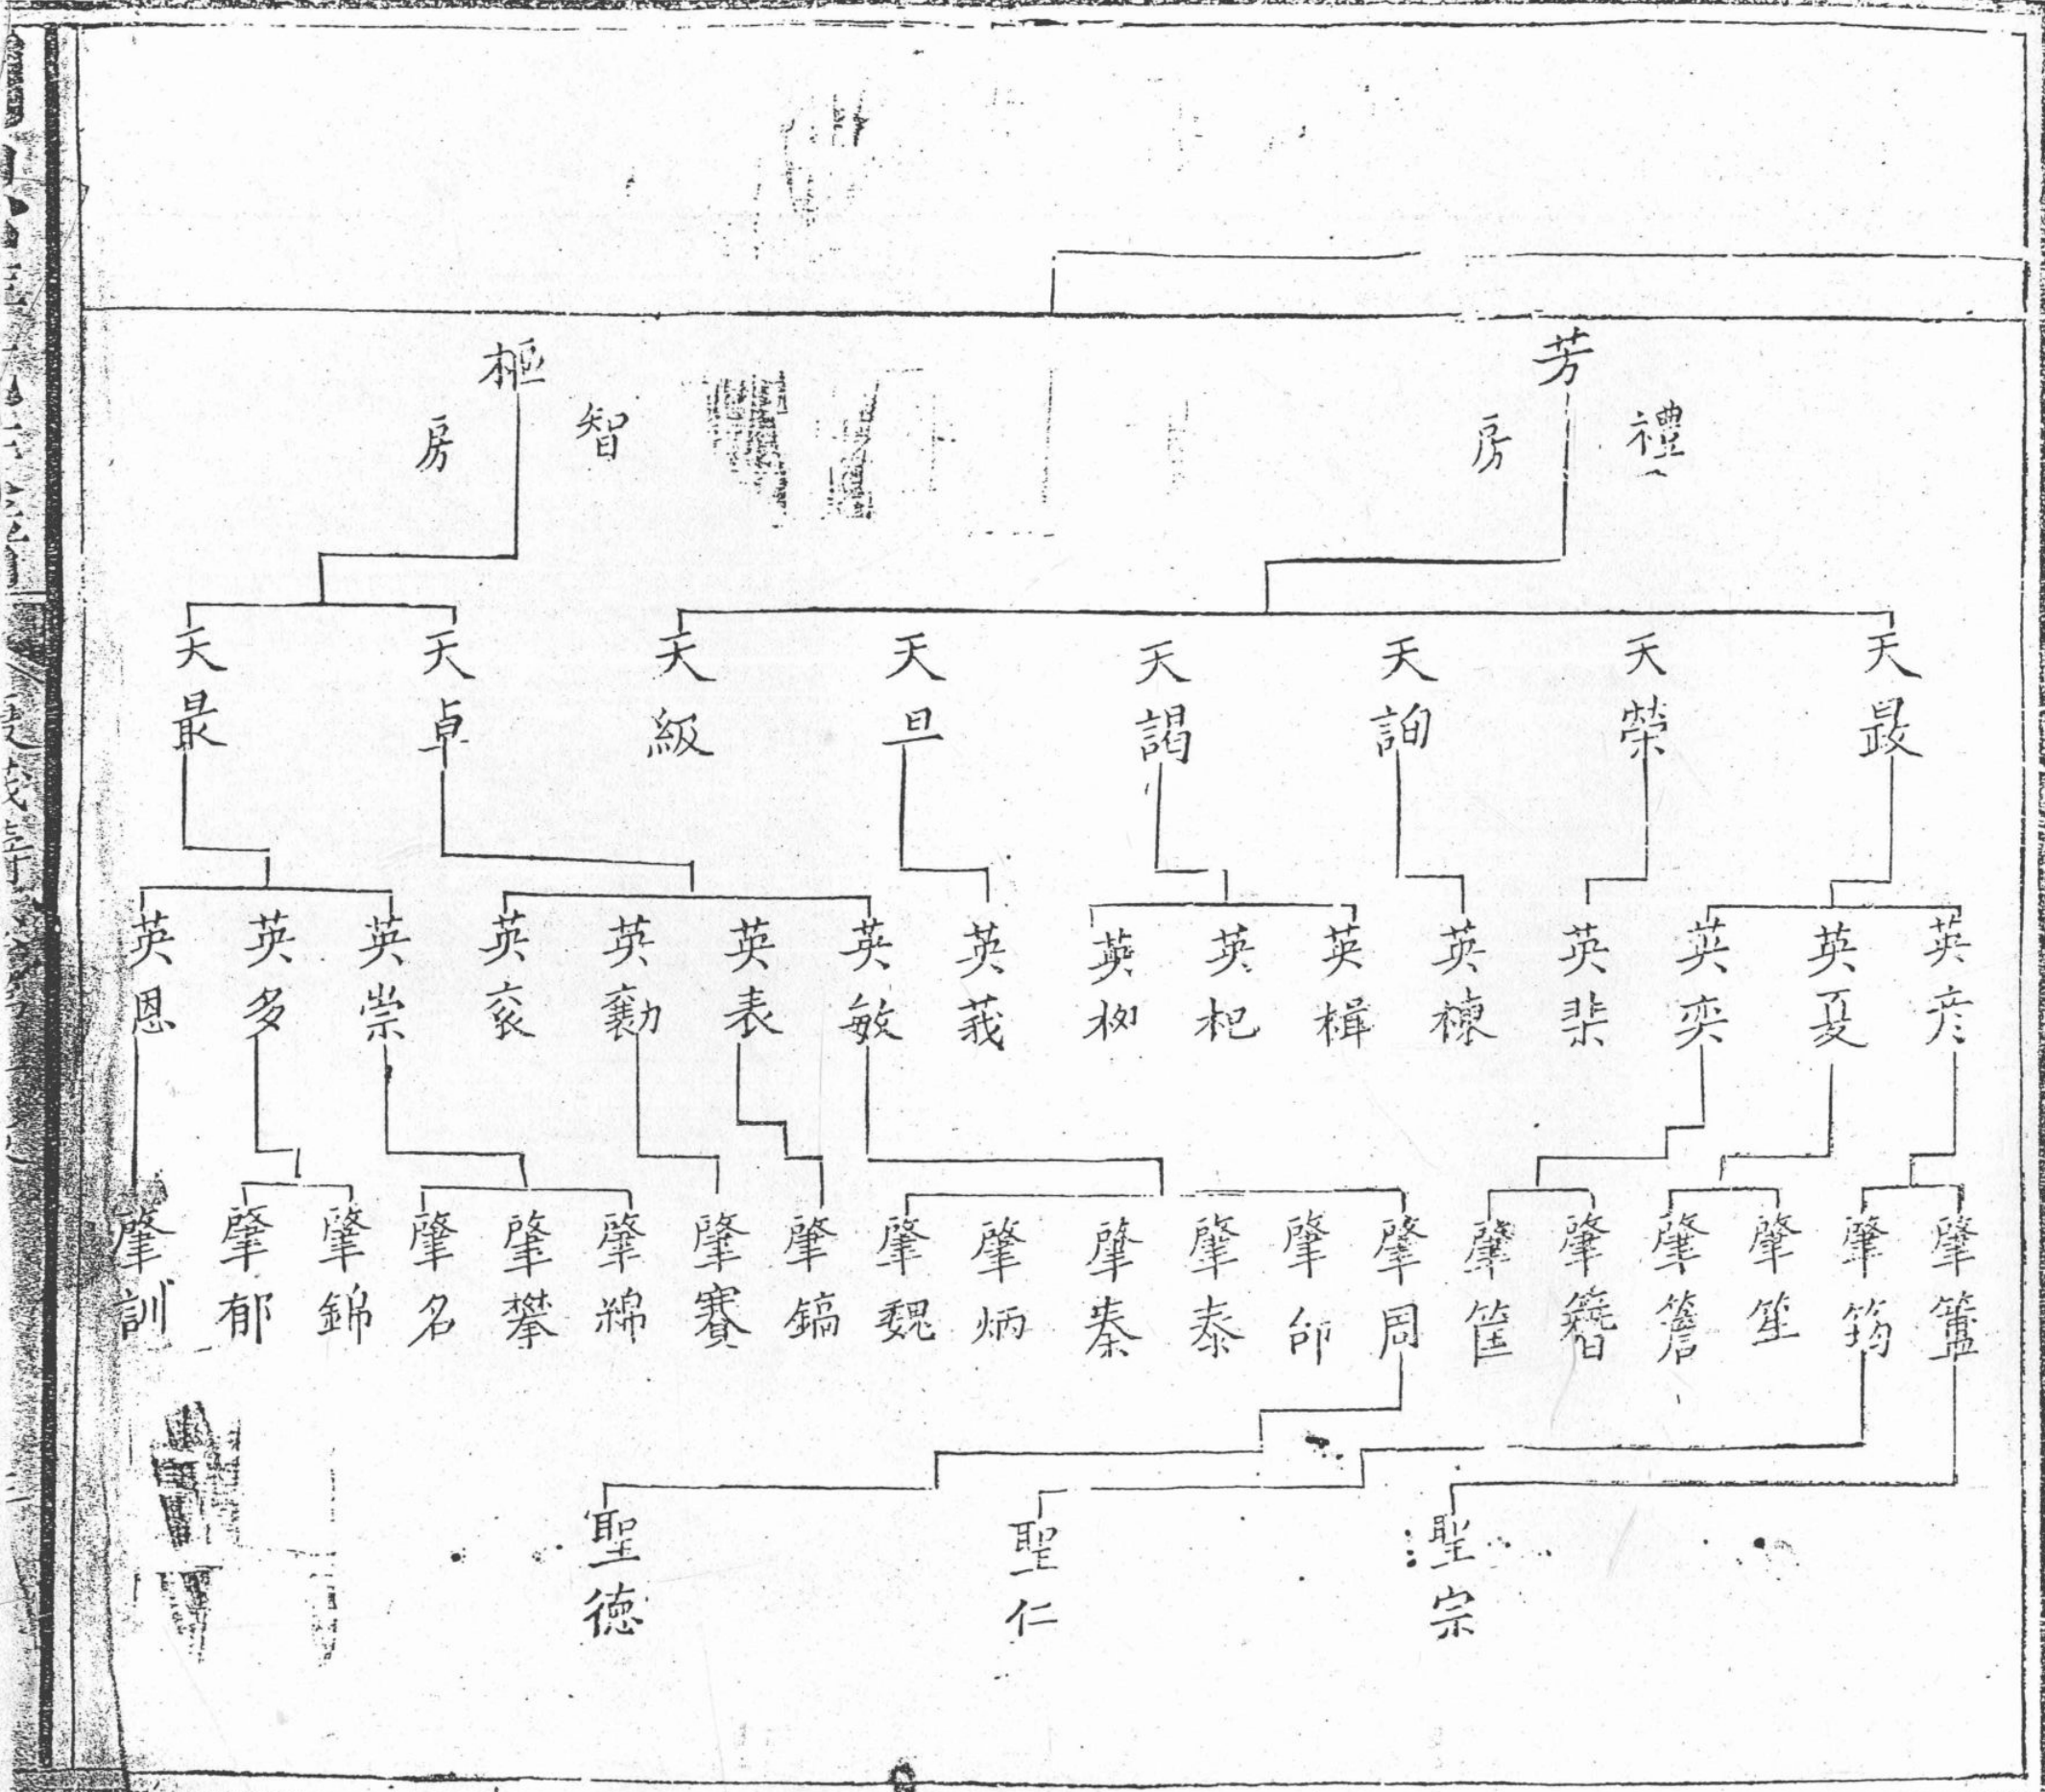 芳
禮房
樞
智房
天榮
天詢
天謁
天旦
天級
天卓
天最
英彦
英夏
英奕
英棐
英棟
英楫
英杞
英莪
英敏
英表
英勷
英衮
英崇
英多
英恩
肇簠
肇筠
肇笙
肇簷
肇簪
肇筐
肇周
肇邰
肇泰
肇秦
肇炳
肇魏
肇鎬
肇賽
肇綿
肇攀
肇名
肇錦
肇郁
肇訓
聖宗
聖仁
聖德